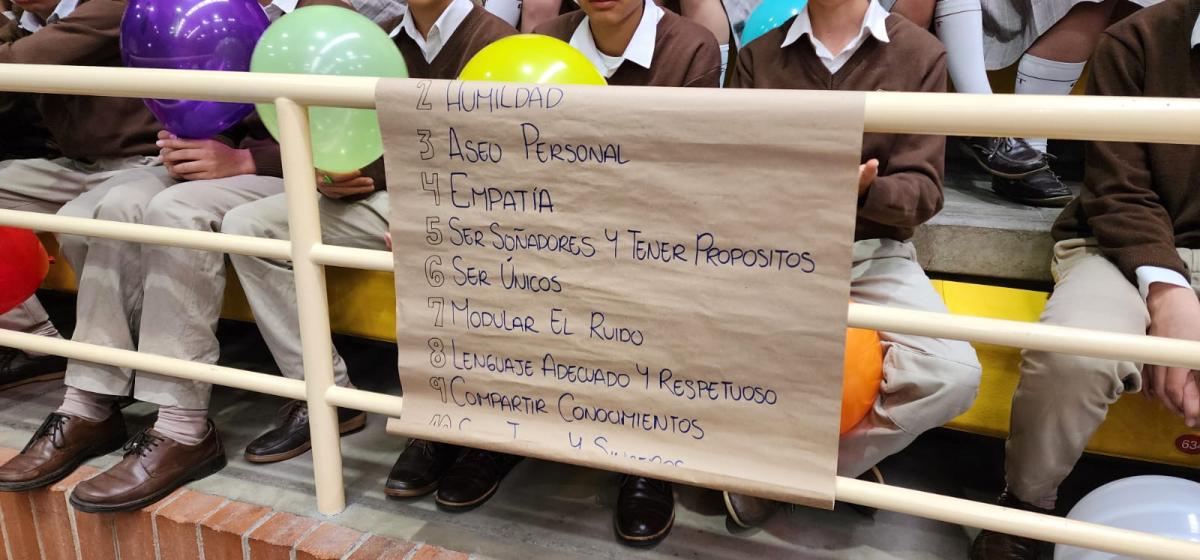 2 HUMILDAD
3 ASEO PERSONAL
4 EMPATÍA
5 SER SOÑADORES Y TENER PROPOSITOS
6 SER ÚNICOS
7 MODULAR EL RUIDO
8 LENGUAJE ADECUADO Y RESPETUOSO
9 COMPARTIR CONOCIMIENTOS
10